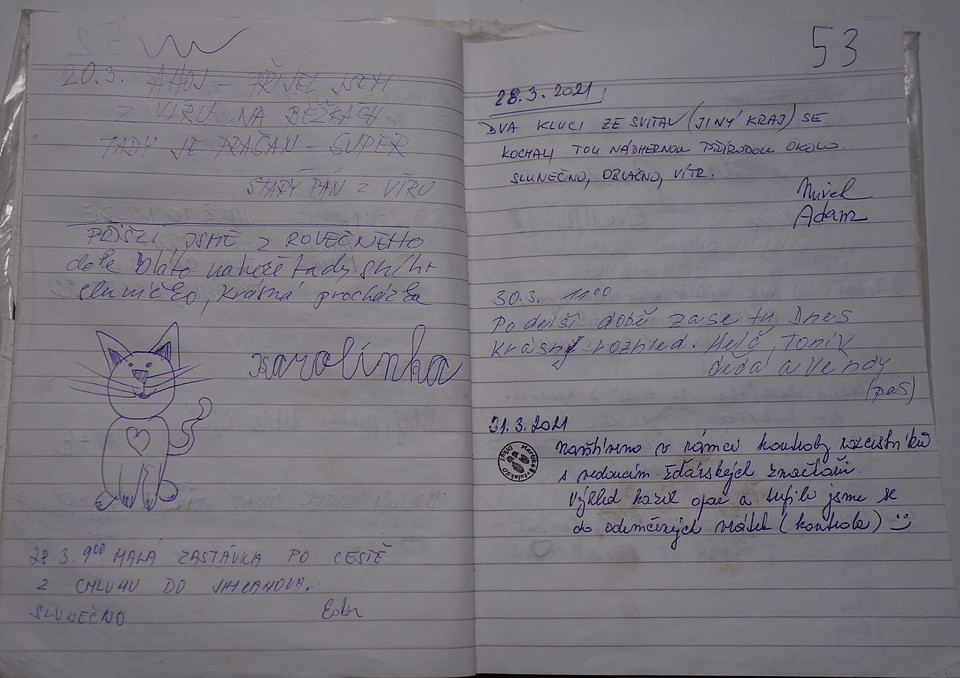 20.3. AHOJ – PŘIJEL JSEM
Z VÍRU NA BĚŽKÁCH
TADY JE PRAČAN – SUPER
STARÝ PÁN Z VÍRU
PŘIŠLI JSME Z ROVEČNÉHO
dole bláto nahoře tady sníh
sluníčko, krásná procházka
Karolínka
28 3. 9⁰⁰ MALÁ ZASTÁVKA PO CESTĚ
Z CHLUMU DO
SLUNEČNO Ester
53
28.3.2021
DVA KLUCI ZE SVITAV (JINÝ KRAJ) SE
KOCHALI TOU NÁDHERNOU PŘÍRODOU OKOLO.
SLUNEČNO, OBLAČNO, VÍTR.
Adam
30.3. 11⁰⁰
Po delší době zase tu. Dnes
krásný rozhled. Helč, Toník
děda a Vendy
(pes)
31.3.2021
Navštíveno v rámci kontroly rozcestníků
s vedoucím žďárských značkařů.
Výhled kazil opar a trefili jsme se
do odemčených vrátek (kontrola) :)